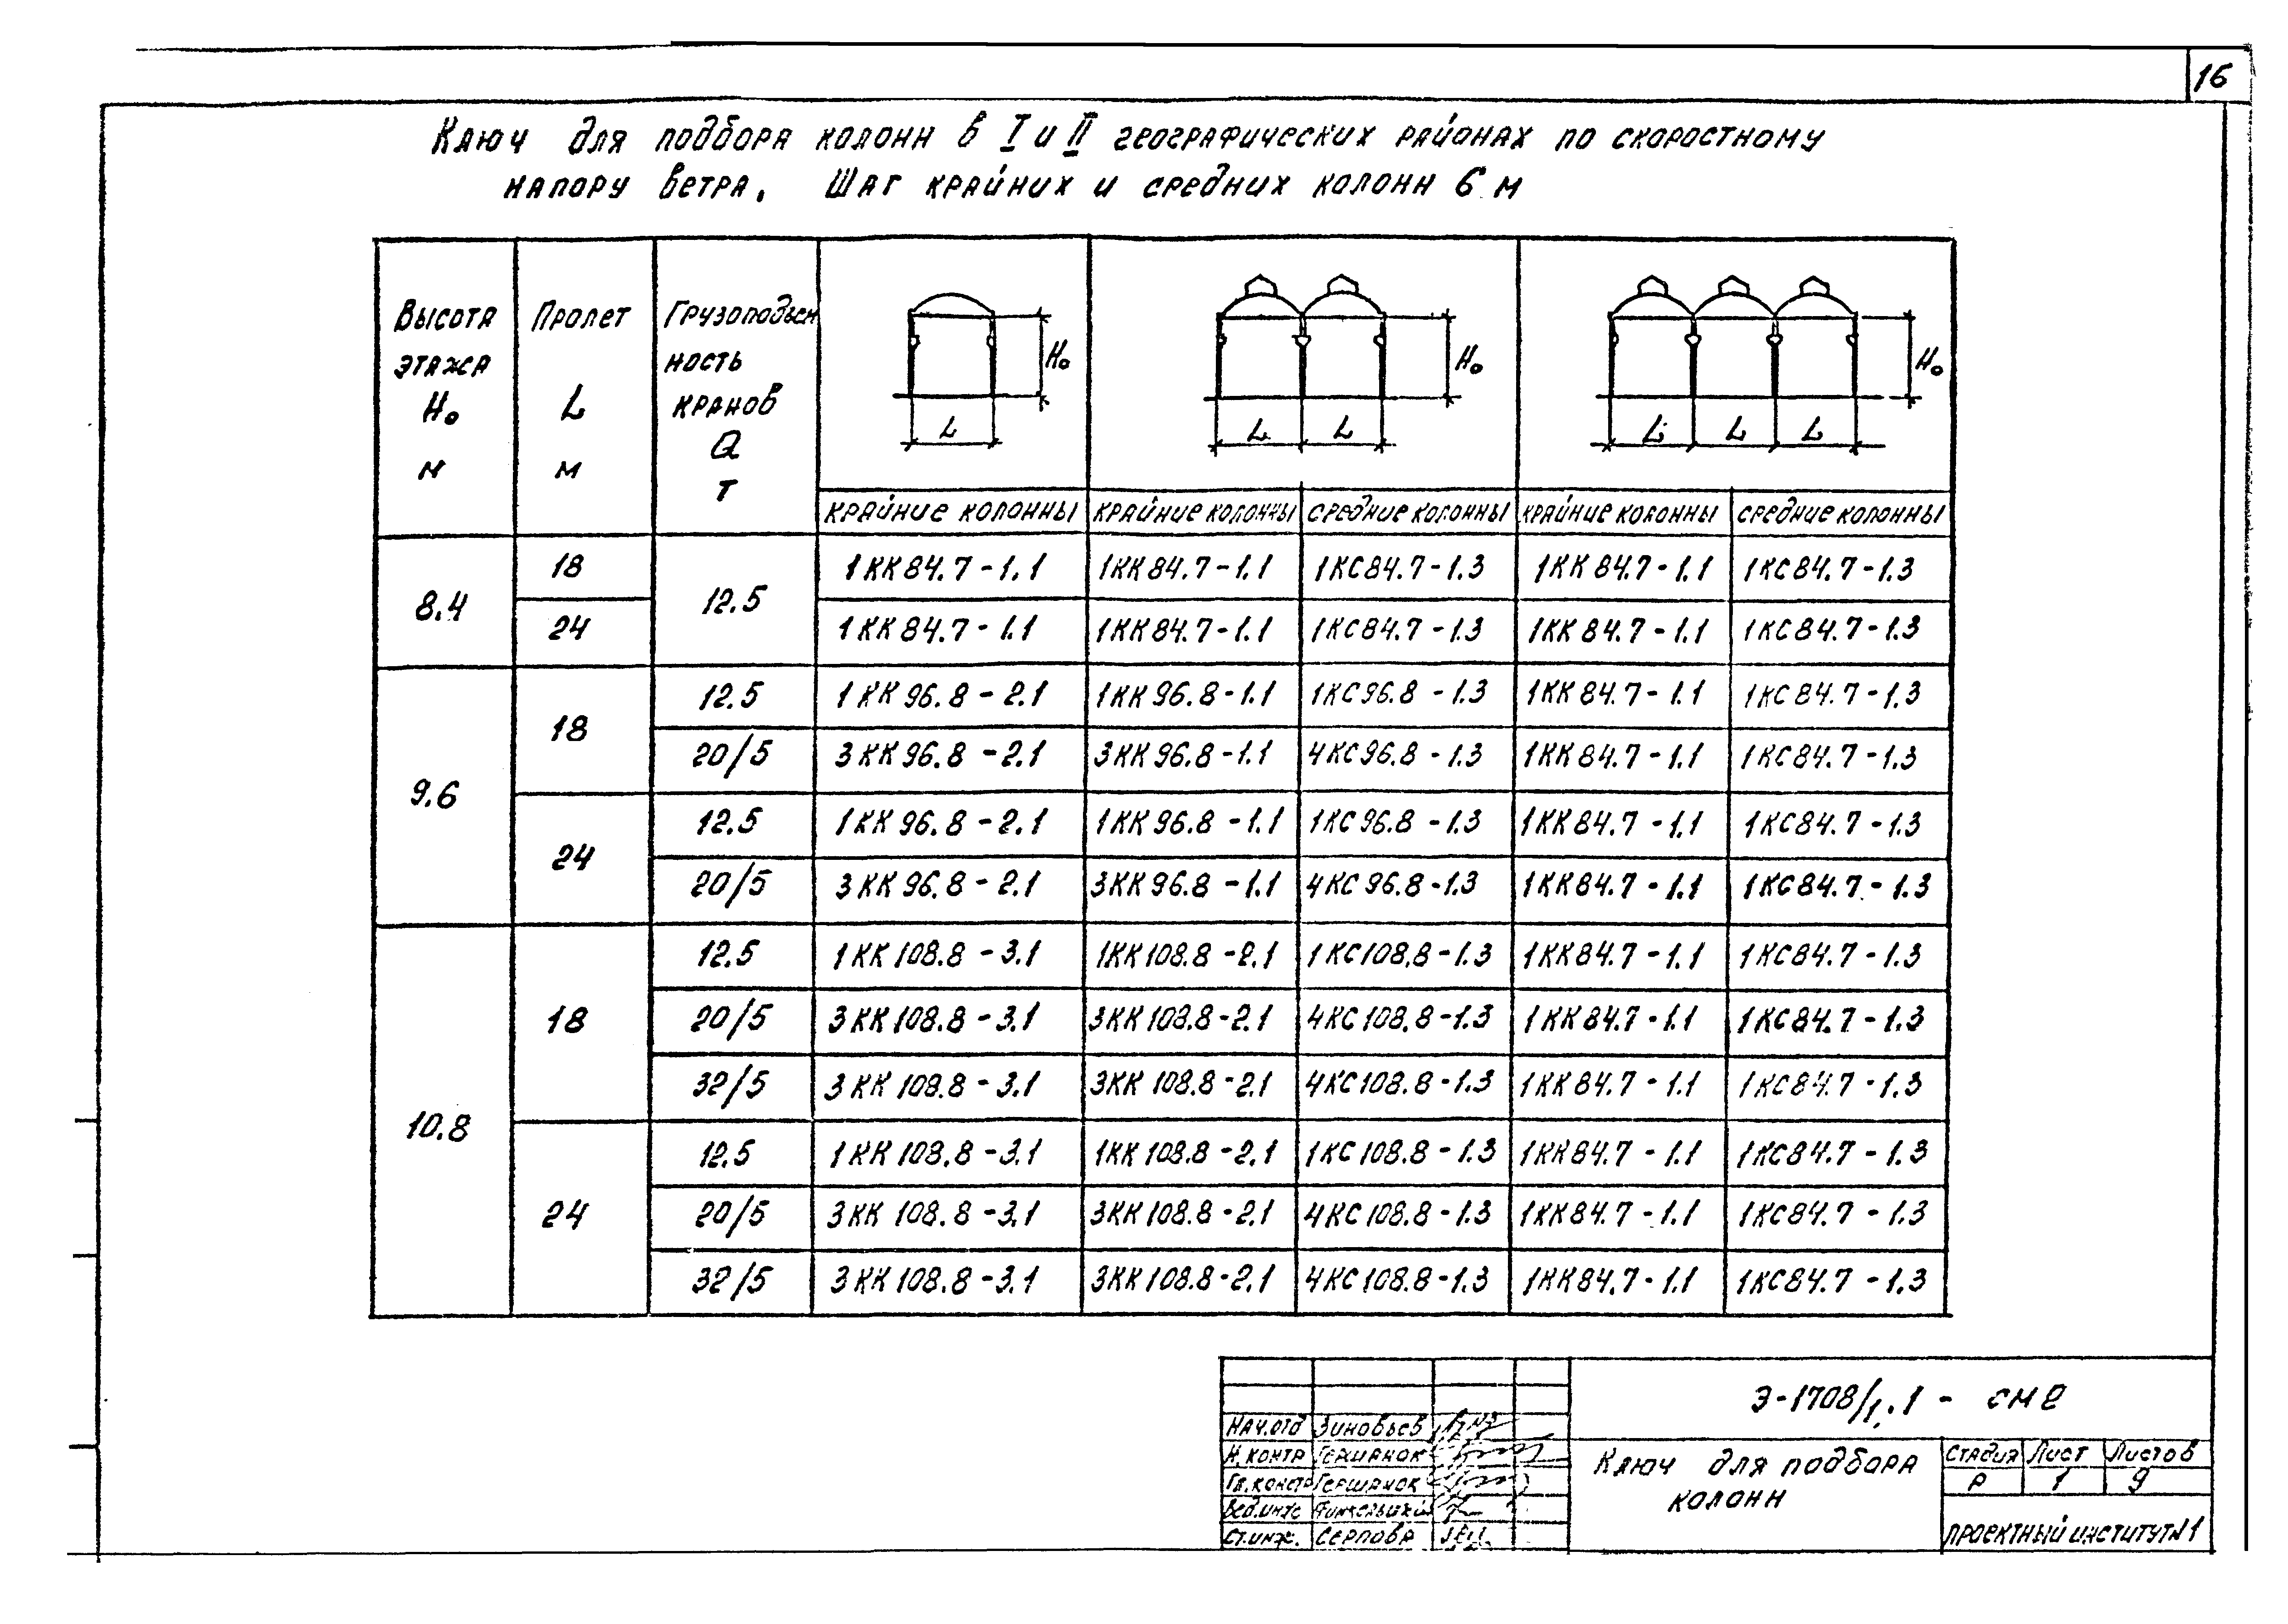 16
Ключ для подбора колонн в I и II географических районах по скоростному
напору ветра. Шаг крайних и средних колонн 6 м
Высота этажа Н₀ м
Пролет L м
Грузоподъем ность кранов Q т
Н₀ L
Н₀ L L
Н₀ L L L
крайние колонны крайние колонны средние колонны крайние колонны средние колонны
8.4 18 12.5 1КК84.7-1.1 1КК84.7-1.1 1КС84.7-1.3 1КК84.7-1.1 1КС84.7-1.3
24 1КК84.7-1.1 1КК84.7-1.1 1КС84.7-1.3 1КК84.7-1.1 1КС84.7-1.3
9.6 18 12.5 1КК96.8-2.1 1КК96.8-1.1 1КС96.8-1.3 1КК84.7-1.1 1КС84.7-1.3
20/5 3КК96.8-2.1 3КК96.8-1.1 4КС96.8-1.3 1КК84.7-1.1 1КС84.7-1.3
24 12.5 1КК96.8-2.1 1КК96.8-1.1 1КС96.8-1.3 1КК84.7-1.1 1КС84.7-1.3
20/5 3КК96.8-2.1 3КК96.8-1.1 4КС96.8-1.3 1КК84.7-1.1 1КС84.7-1.3
10.8 18 12.5 1КК108.8-3.1 1КК108.8-2.1 1КС108.8-1.3 1КК84.7-1.1 1КС84.7-1.3
20/5 3КК108.8-3.1 3КК108.8-2.1 4КС108.8-1.3 1КК84.7-1.1 1КС84.7-1.3
32/5 3КК108.8-3.1 3КК108.8-2.1 4КС108.8-1.3 1КК84.7-1.1 1КС84.7-1.3
24 12.5 1КК108.8-3.1 1КК108.8-2.1 1КС108.8-1.3 1КК84.7-1.1 1КС84.7-1.3
20/5 3КК108.8-3.1 3КК108.8-2.1 4КС108.8-1.3 1КК84.7-1.1 1КС84.7-1.3
32/5 3КК108.8-3.1 3КК108.8-2.1 4КС108.8-1.3 1КК84.7-1.1 1КС84.7-1.3
Э-1708/1.1 - СМ2
Нач.отд Зиновьев
Н.контр Гершанок
Гл.констр Гершанок
Вед.инж
Ст.инж. Серпова
Ключ для подбора
колонн
Стадия Лист Листов
Р 1 9
Проектный институт №1